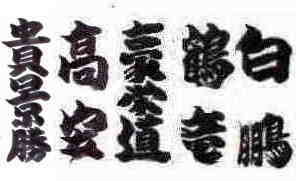 白鵬
鶴竜
豪栄道
高安
貴景勝